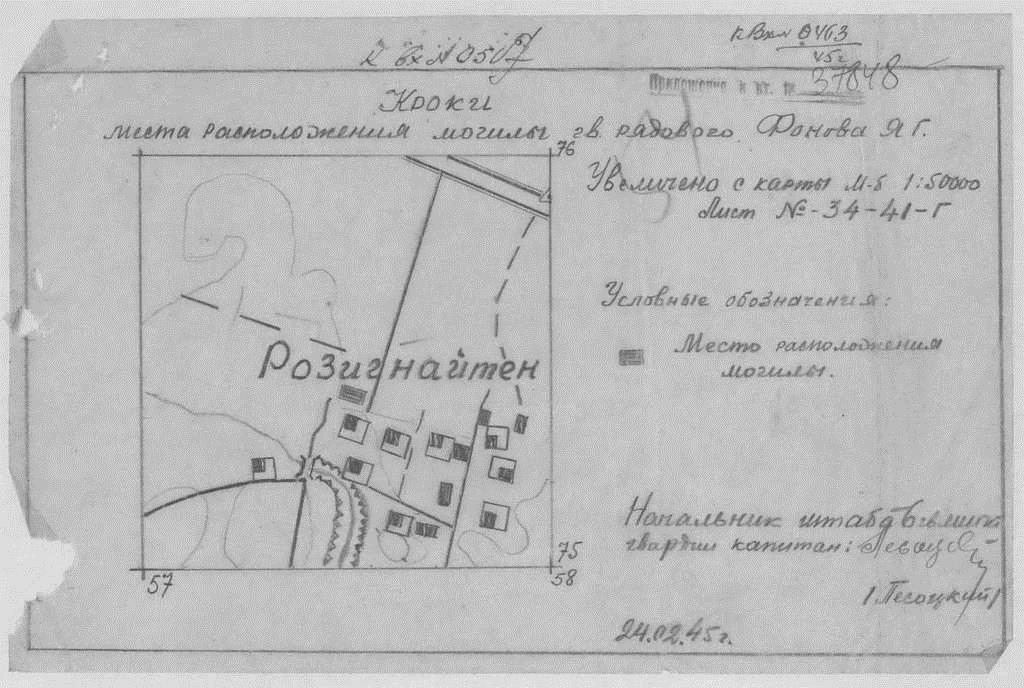 к вх N 0507
к Вх N 0463
45г
Приложение к вх. № 37848
Кроки
места расположения могилы гв. рядового Фонова Я Г.
76
Увеличено с карты М-б 1:50000
Лист №-34-41-Г
Условные обозначения:
Розигнайтен
Место расположения
могилы.
Начальник штаба
гвардии капитан:
75
57
58
/Песоцкий/
24.02.45г.